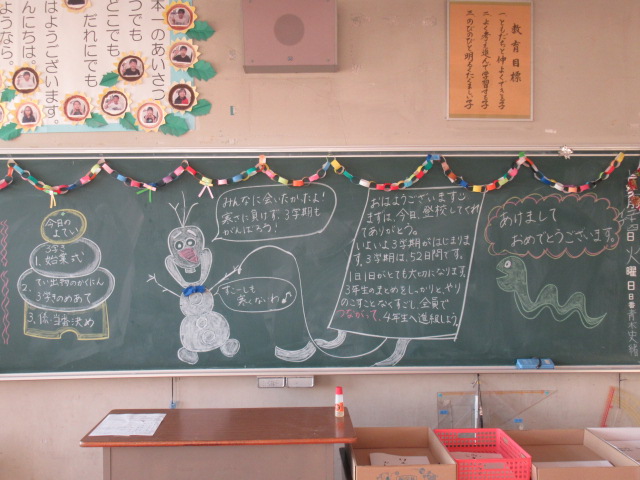 本一のあいさつ
つでも
どこでも
だれにでも
はようございます。
んにちは。
ようなら。
教育目標
一 ともだちと仲よくする子
二 よく考え進んで学習する子
三 のびのびと明るくたくましい子
今日の
よてい
3学き
1. 始業式
2. てい出物のかくにん
3学きのめあて
3. 係・当番決め
みんなに会いたかったよ!
寒さに負けず、3学期も
がんばろう!
すこーしも
寒くないわ♪
おはようございます
まずは、今日、登校してくれ
てありがとう。
いよいよ3学期がはじまりま
す。3学期は、52日間です。
1日1日がとても大切になります。
3年生のまとめをしっかりと、やり
のこすことなくすごし、全員で
つながって、4年生へ進級しよう。
あけまして
おめでとうございます。
日
火
曜日
日直
青木